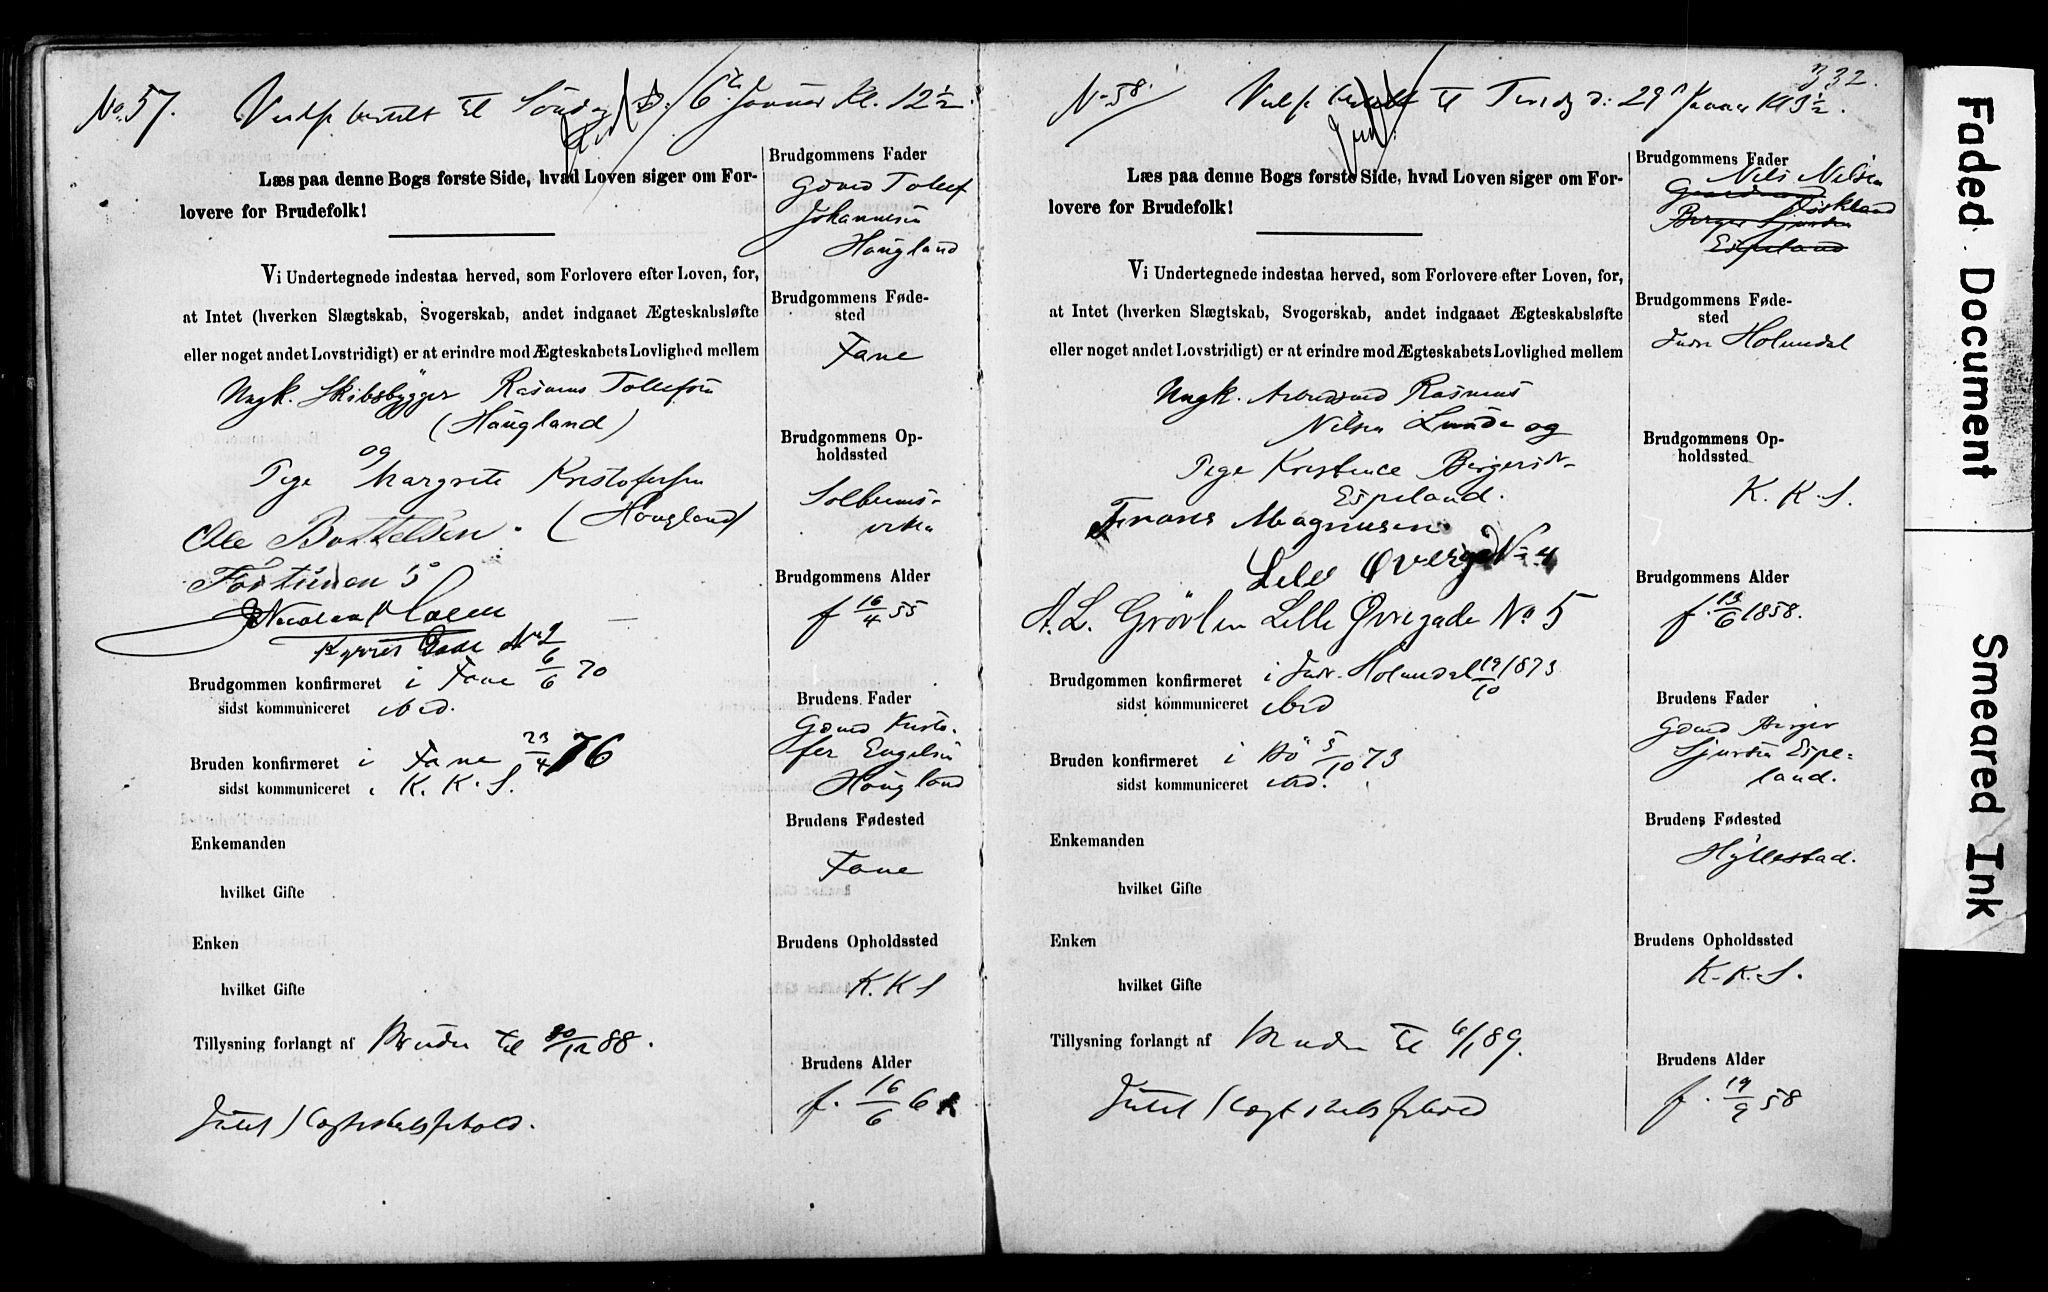 No. 57. Vielse bestilt til Søndag d. 6te Januar Kl. 12 1/2.
Læs paa denne Bogs første Side, hvad Loven siger om For-
lovere for Brudefolk!
Vi Undertegnede indestaa herved, som Forlovere efter Loven, for,
at Intet (hverken Slægtskab, Svogerskab, andet indgaaet Ægteskabsløfte
eller noget andet Lovstridigt) er at erindre mod Ægteskabets Lovlighed mellem
Ungk. Skibsbygger Rasmus Tollefsen
(Hougland)
og
Pige Margrete Kristofersen
(Hougland)
Ole Bottelsen.
Fortunen 5
Holm
Gade No 2
Brudgommen konfirmeret i Fane 6/6 70
sidst kommuniceret ibid.
Bruden konfirmeret i Fane 23/4 76
sidst kommuniceret i K. K. S.
Enkemanden
hvilket Gifte
Enken
hvilket Gifte
Tillysning forlangt af Bruden til 30/12 88.
Intet Slægtskabsforhold.
Brudgommens Fader
Gdmd Tollef
Johannesen
Hougland
Brudgommens Føde-
sted
Fane
Brudgommens Op-
holdssted
Solheims-
viken
Brudgommens Alder
f. 16/4 55
Brudens Fader
Gdmd Kristo-
fer Engelsen
Hougland
Brudens Fødested
Fane
Brudens Opholdssted
K. K. S
Brudens Alder
f. 16/6 61
332.
No 58. Vielse bestilt til Tirsdag d: 29 Januar Kl 3 1/2.
Læs paa denne Bogs første Side, hvad Loven siger om For-
lovere for Brudefolk!
Vi Undertegnede indestaa herved, som Forlovere efter Loven, for,
at Intet (hverken Slægtskab, Svogerskab, andet indgaaet Ægteskabsløfte
eller noget andet Lovstridigt) er at erindre mod Ægteskabets Lovlighed mellem
Ungk. Arbeidsmd Rasmus
Nilsen Lunde og
Pige Kristence Bergersdr
Espeland.
Frans Magnusen
Lille Øvregd No 4
A. L. Grövlen Lille Øvregade No 5
Brudgommen konfirmeret i Indr. Holmedal 19/10 1873
sidst kommuniceret ibid
Bruden konfirmeret i Bö 5/10 73
sidst kommuniceret ibid.
Enkemanden
hvilket Gifte
Enken
hvilket Gifte
Tillysning forlangt af Bruden til 6/1 89.
Intet Slægtskabsforhold
Brudgommens Fader
Nils Nilsen
Gaardmand
Berger Sjursen
Espeland
Brudgommens Føde-
sted
Indre Holmedal
Brudgommens Op-
holdssted
K. K. S.
Brudgommens Alder
f. 13/6 1858.
Brudens Fader
Gdmd Berger
Sjursen Espe-
land.
Brudens Fødested
Hyllestad.
Brudens Opholdssted
K. K. S.
Brudens Alder
f. 19/9 58
Faded Document
Smeared Ink